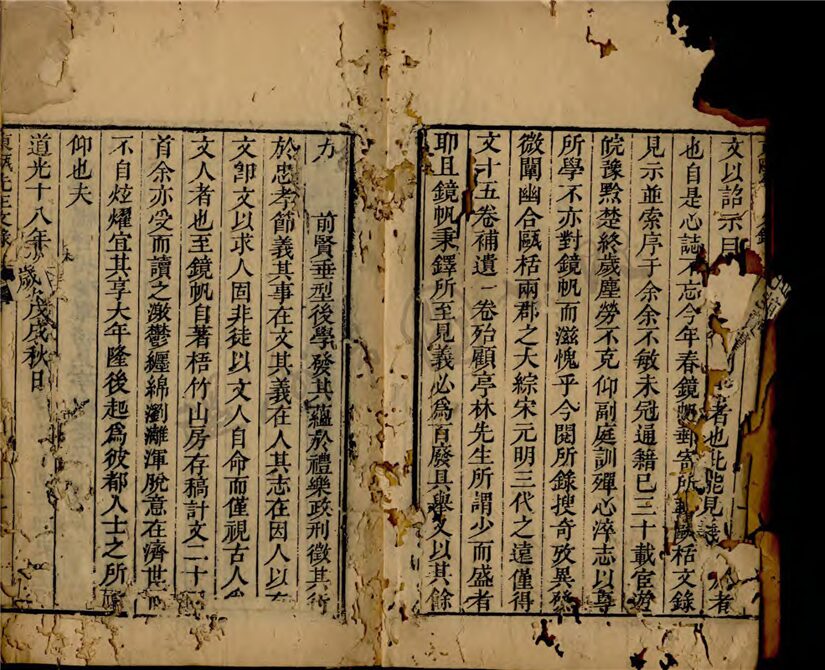 文以詔示目者也此能見者
也自是心誌不忘今年春鏡帆郵寄所輯甌栝文錄
見示並索序于余余不敏未冠通籍已三十載宦遊
皖豫黔楚終歲塵勞不克仰副庭訓殫心淬志以尊
所學不亦對鏡帆而滋愧乎今閱所錄搜奇攷異發
微闡幽合甌栝兩郡之大綜宋元明三代之遠僅得
文十五卷補遺一卷殆顧亭林先生所謂少而盛者
耶且鏡帆秉鐸所至見義必為百廢具舉又以其餘
力 前賢垂型後學發其蘊於禮樂政刑徵其行
於忠孝節義其事在文其義在人其志在因人以存
文卽文以求人固非徒以文人自命而僅視古人為
文人者也至鏡帆自著梧竹山房存稿計文二十
首余亦受而讀之激鬱纏綿瀏灕渾脫意在濟世而
不自炫耀宜其享大年隆後起為彼都人士之所
仰也夫
道光十八年歲戊戌秋日